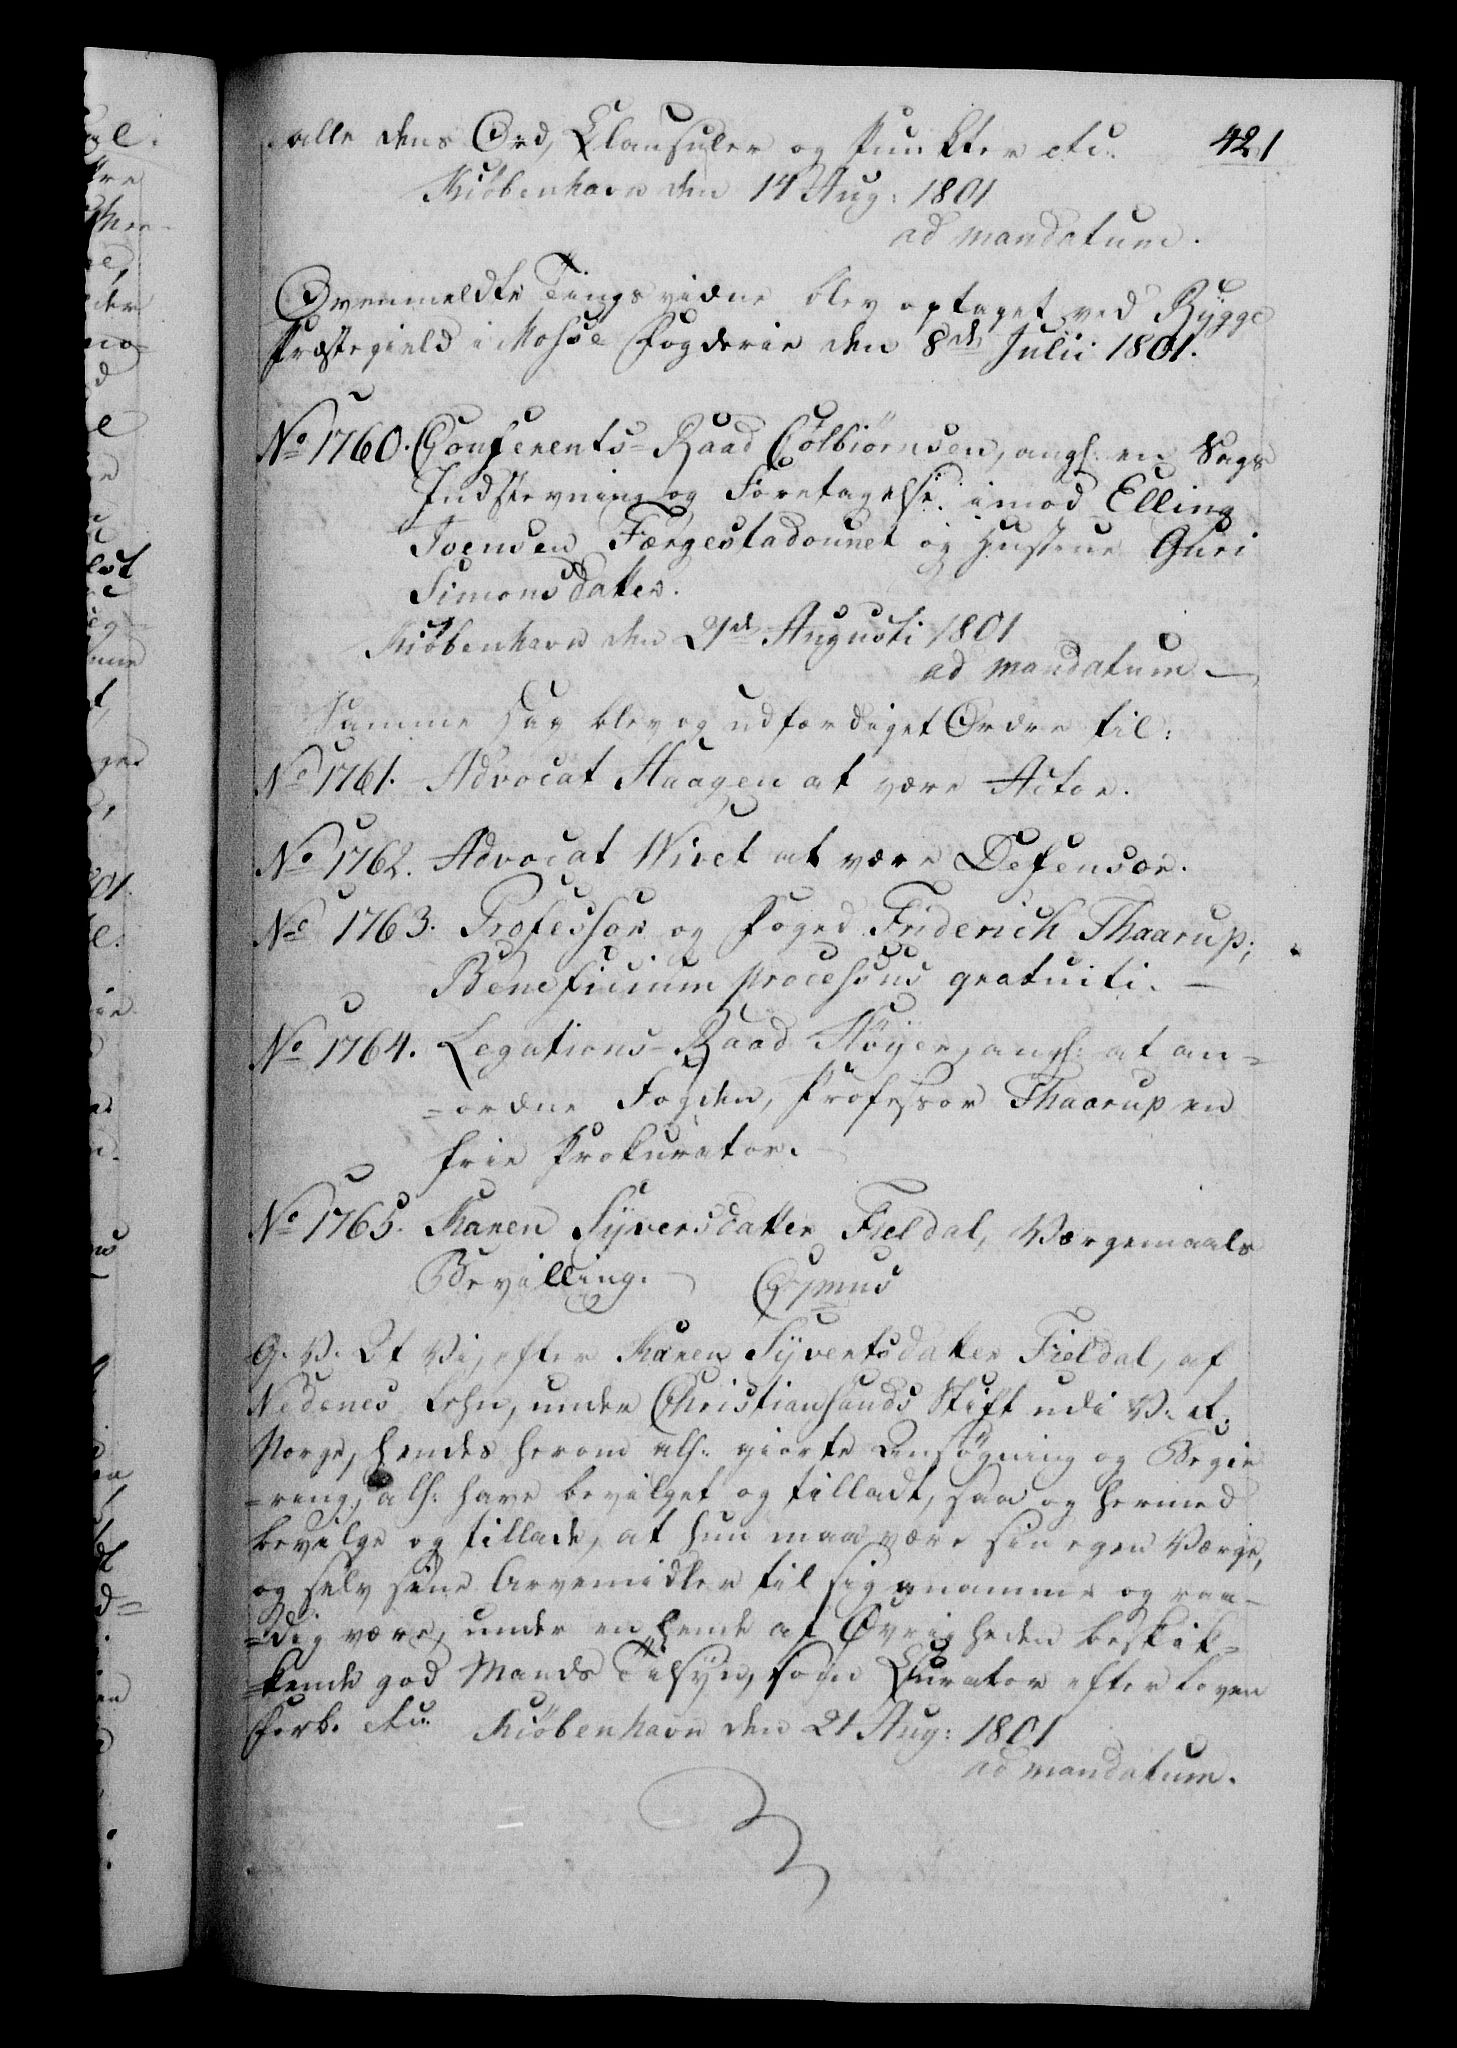 421
alle dens Ord, Clausuler og Punkter etc.
Kiöbenhavn den 14 Aug: 1801
ad mandatum.
Ovenmeldte Tingsvidne blev optaget ved Rygge
Præstegield i Mosse Fogderie den 8de Julii 1801.
No 1760. Conferents-Raad Colbiörnsen, angl: en Sags
Indstevning og Foretagelse imod Elling
Ivensen Færgestadounet og Hustrue Guri
Simonsdatter.
Kiöbenhavn den 21de Augusti 1801
ad mandatum.
Samme Dag blev og udfærdiget Ordre til:
No 1761. Advocat Haagen at være Actor.
No 1762. Advocat Wivet at være Defensor.
No 1763. Professor og Foged Friderich Thaarup;
Beneficium processus gratuiti. —
No 1764. Legations-Raad Höyer, angl: at an=
=ordne Fogden, Professor Thaarup en
frie Prokurator.
No 1765. Karen Syversdatter Fieldal, Værgemaals
Bevilling.
G. V. At Vi, efter Karen Syvertsdatter Fieldal, af
Nedenes Lehn, under Christiansands Stift udi V. R.
Norge, hendes herom all: giorte Ansøgning og Begie
=ring, all: have bevilget og tilladt, saa og hermed
bevilge og tillade, at hun maa være sin egen Værge,
og selv sine Arvemidler til sig annamme og raa=
=dig være, under en hende af Øvrigheden beskik=
=kende god Mands Tilsyn, som Curator efter Loven
Forb. etc. Kiöbenhavn den 21 Aug: 1801
ad mandatum.